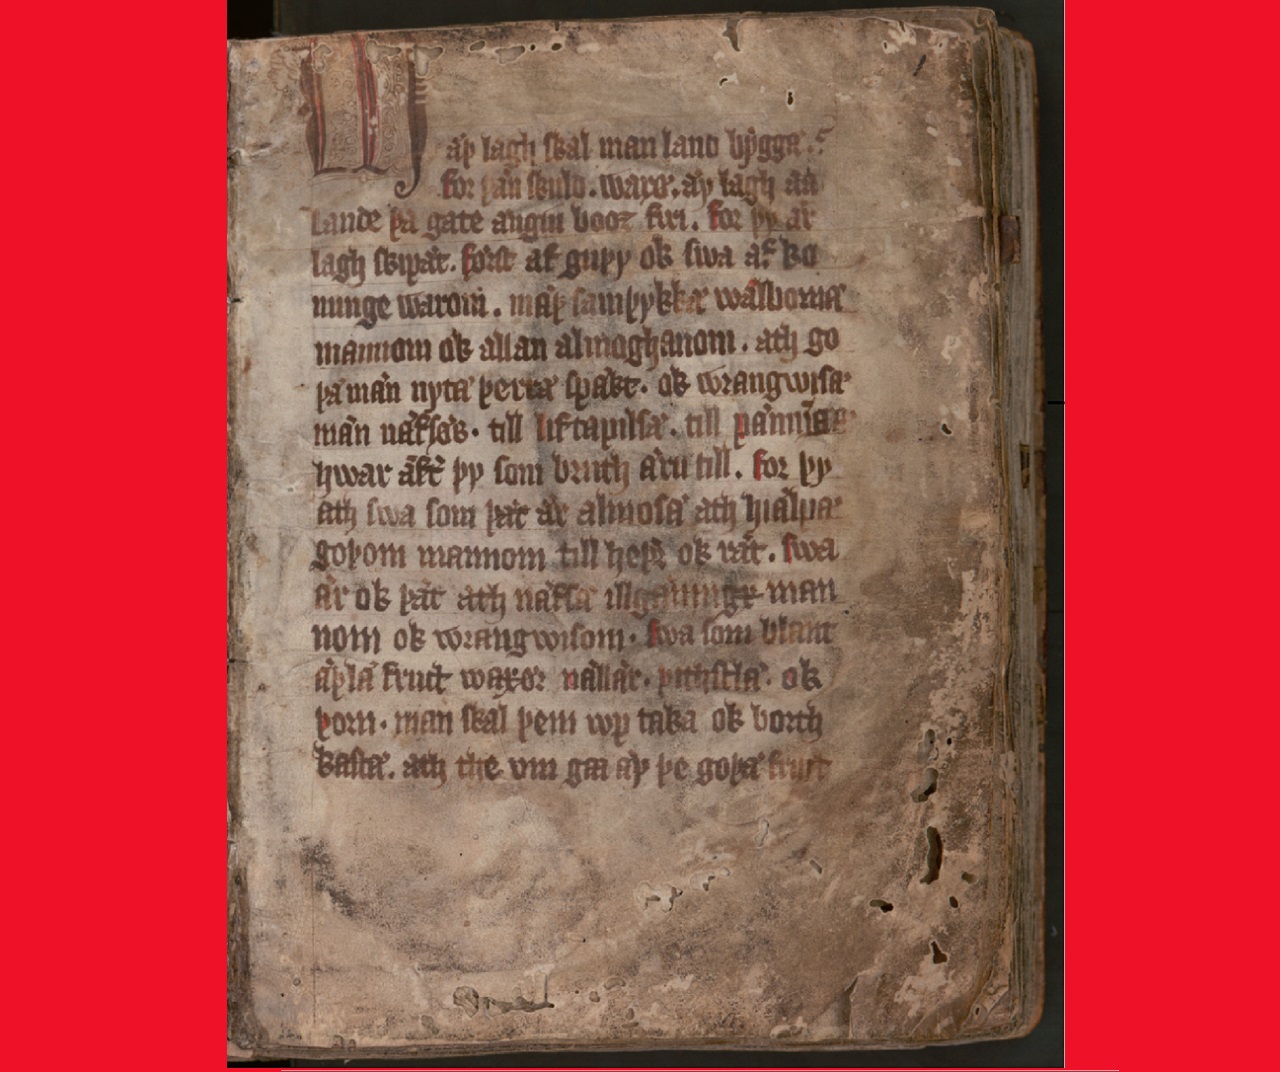 Maþ lagh skal man land byggæ.
for þan skuld. waræ. æy lagh aa
lande þa gate ængin boot firi. for þy ær
lagh skipat. først af guþy ok swa af ko
nunge warom. mæþ samþykkæ wælbornæ
mannom ok allan almoghanom. ath go
þæ mæn nytæ þerræ spækt. ok wrangwisæ
mæn næfsæs. till liftapilsæ. till
hwar æftæ þy som bruth æru till. for þy
ath swa som þæt ær almosa ath hiælpa
goþom mannom till heþer ok ræt. swa
ær ok þæt ath næfsa man
nom ok wrangwisom. swa som blant
æþla fruct waxer nællær. þithstlæ. ok
þorn. man skal þem wp taka ok borth
kastæ. ath the um gaa æy þe goþæ fruct